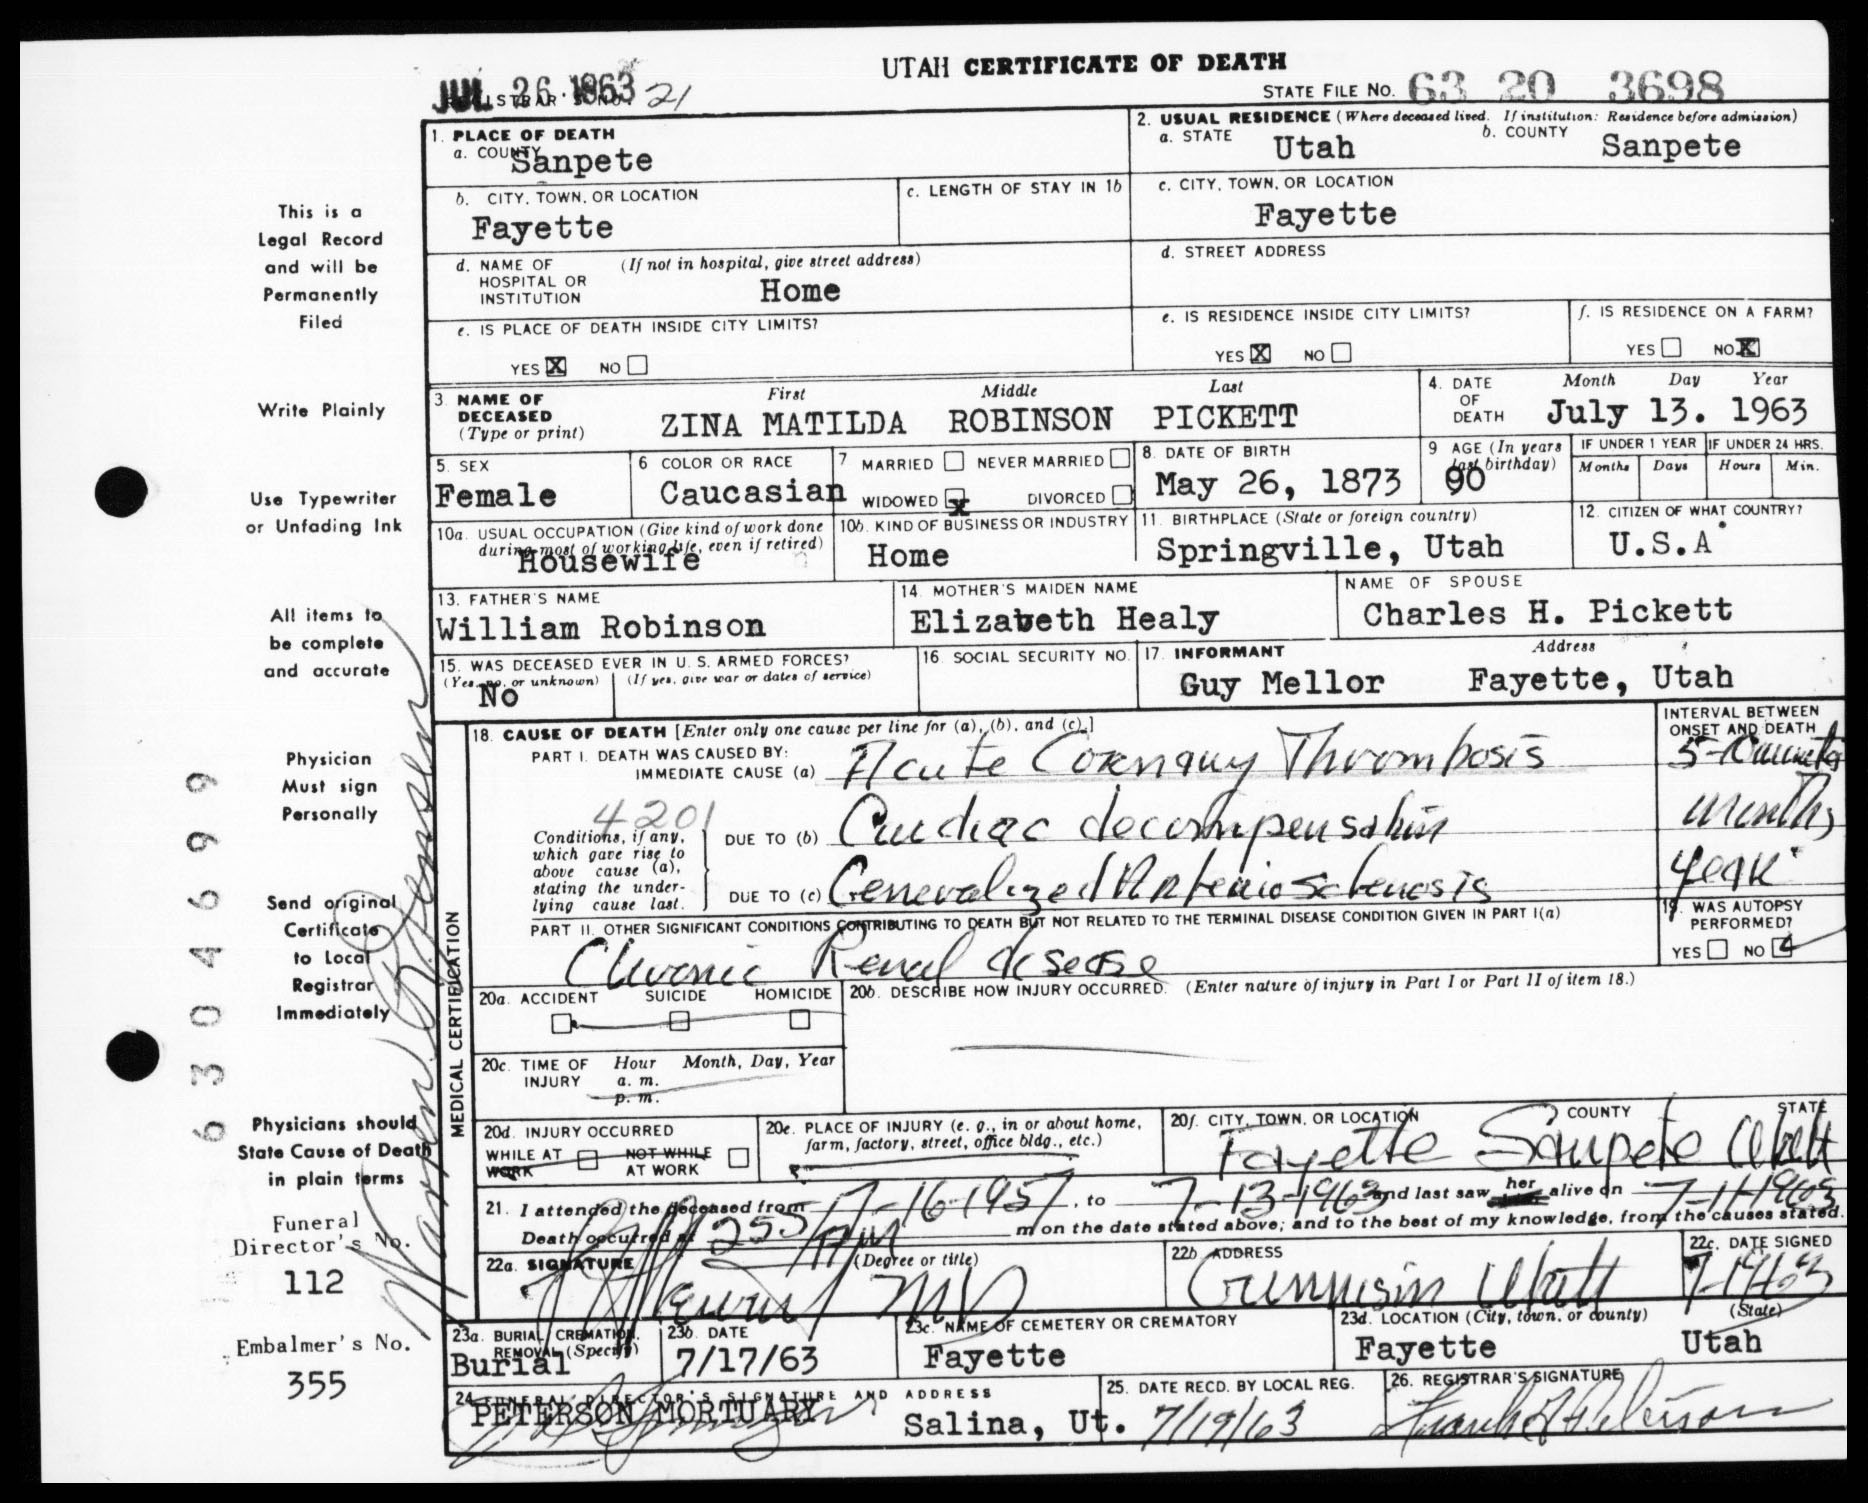 UTAH CERTIFICATE OF DEATH
JUL 26 1963
REGISTRAR'S NO. 21
STATE FILE NO. 63 20 3698
1. PLACE OF DEATH
a. COUNTY
Sanpete
2. USUAL RESIDENCE (Where deceased lived. If institution: Residence before admission)
a. STATE Utah b. COUNTY Sanpete
b. CITY, TOWN, OR LOCATION
Fayette
c. LENGTH OF STAY IN 1b
c. CITY, TOWN, OR LOCATION
Fayette
d. NAME OF HOSPITAL OR INSTITUTION (If not in hospital, give street address)
Home
d. STREET ADDRESS
e. IS PLACE OF DEATH INSIDE CITY LIMITS?
YES X NO
e. IS RESIDENCE INSIDE CITY LIMITS?
YES X NO
f. IS RESIDENCE ON A FARM?
YES NO X
3. NAME OF DECEASED (Type or print)
First Middle Last
ZINA MATILDA ROBINSON PICKETT
4. DATE OF DEATH Month Day Year
July 13. 1963
5. SEX
Female
6 COLOR OR RACE
Caucasian
7 MARRIED NEVER MARRIED
WIDOWED X DIVORCED
8. DATE OF BIRTH
May 26, 1873
9 AGE (In years last birthday)
90
IF UNDER 1 YEAR
Months Days
IF UNDER 24 HRS.
Hours Min.
10a. USUAL OCCUPATION (Give kind of work done during most of working life, even if retired)
Housewife
10b. KIND OF BUSINESS OR INDUSTRY
Home
11. BIRTHPLACE (State or foreign country)
Springville, Utah
12. CITIZEN OF WHAT COUNTRY?
U.S.A.
13. FATHER'S NAME
William Robinson
14. MOTHER'S MAIDEN NAME
Elizabeth Healy
NAME OF SPOUSE
Charles H. Pickett
15. WAS DECEASED EVER IN U. S. ARMED FORCES?
(Yes, no, or unknown) (If yes, give war or dates of service)
No
16. SOCIAL SECURITY NO.
17. INFORMANT Address
Guy Mellor Fayette, Utah
18. CAUSE OF DEATH [Enter only one cause per line for (a), (b), and (c).]
INTERVAL BETWEEN ONSET AND DEATH
PART I. DEATH WAS CAUSED BY:
IMMEDIATE CAUSE (a) Acute Coronary Thrombosis
4201
Conditions, if any, which gave rise to above cause (a), stating the underlying cause last.
DUE TO (b) Cardiac decompensation months
DUE TO (c) Generalized Arteriosclerosis
PART II. OTHER SIGNIFICANT CONDITIONS CONTRIBUTING TO DEATH BUT NOT RELATED TO THE TERMINAL DISEASE CONDITION GIVEN IN PART I(a)
Chronic Renal disease
19. WAS AUTOPSY PERFORMED?
YES NO
20a. ACCIDENT SUICIDE HOMICIDE
20b. DESCRIBE HOW INJURY OCCURRED. (Enter nature of injury in Part I or Part II of item 18.)
20c. TIME OF INJURY Hour Month, Day, Year
a. m.
p. m.
20d. INJURY OCCURRED
WHILE AT WORK NOT WHILE AT WORK
20e. PLACE OF INJURY (e. g., in or about home, farm, factory, street, office bldg., etc.)
20f. CITY, TOWN, OR LOCATION COUNTY STATE
Fayette Sanpete Utah
21. I attended the deceased from 7-16-1957, to 7-13-1963 and last saw her alive on 7-11-1963
Death occurred at 255 m on the date stated above; and to the best of my knowledge, from the causes stated.
22a. SIGNATURE (Degree or title)
MD
22b ADDRESS
Gunnison Utah
22c. DATE SIGNED
23a. BURIAL, CREMATION, REMOVAL (Specify)
Burial
23b. DATE
7/17/63
23c. NAME OF CEMETERY OR CREMATORY
Fayette
23d. LOCATION (City, town, or county) (State)
Fayette Utah
24. FUNERAL DIRECTOR'S SIGNATURE AND ADDRESS
PETERSON MORTUARY Salina, Ut.
25. DATE RECD. BY LOCAL REG.
7/19/63
26. REGISTRAR'S SIGNATURE
MEDICAL CERTIFICATION
This is a
Legal Record
and will be
Permanently
Filed
Write Plainly
Use Typewriter
or Unfading Ink
All items to
be complete
and accurate
Physician
Must sign
Personally
Send original
Certificate
to Local
Registrar
Immediately
Physicians should
State Cause of Death
in plain terms
Funeral
Director's No.
112
Embalmer's No.
355
6304699